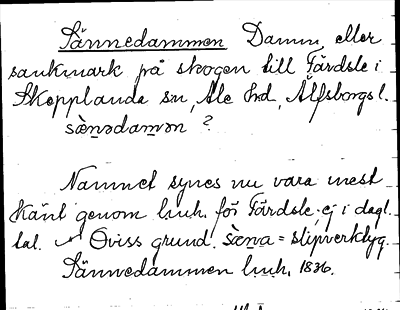 Sännedammen Damm, eller
sankmark på skogen till Färdsle i
Skepplanda sn, Ale hd, Älfsborgs l.
sänədamən ?
Namnet synes nu vara mest
känt genom huh. för Färdsle, ej i dagl.
tal. Oviss grund. säna = slipverktyg.
Sännedammen huh. 1836.